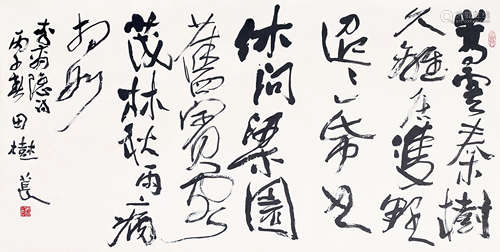 嵩雲秦樹
久離居雙鯉
迢〻一帋書
休問梁園
舊賓客
茂林秋雨病
相如
李商隱詩
丙子春 田樹萇